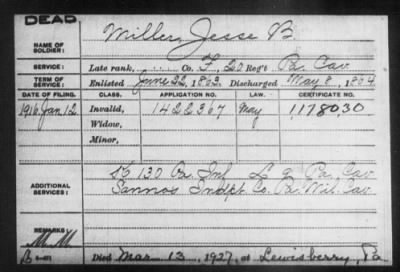 DEAD
NAME OF SOLDIER: Miller, Jesse B
SERVICE: Late rank, Co. F, 20 Reg't Pa. Cav
TERM OF SERVICE: Enlisted June 22, 1863 Discharged May 8, 1864
DATE OF FILING. CLASS. APPLICATION NO. LAW. CERTIFICATE NO.
1916. Jan. 12 Invalid, 1422367 May 1178030
Widow,
Minor,
ADDITIONAL SERVICES: K 130 Pa. Inf L 9 Pa. Cav
Indpt Co. Pa. Mil. Cav
REMARKS:
Died Mar. 13, 1927, at Lewisberry, Pa